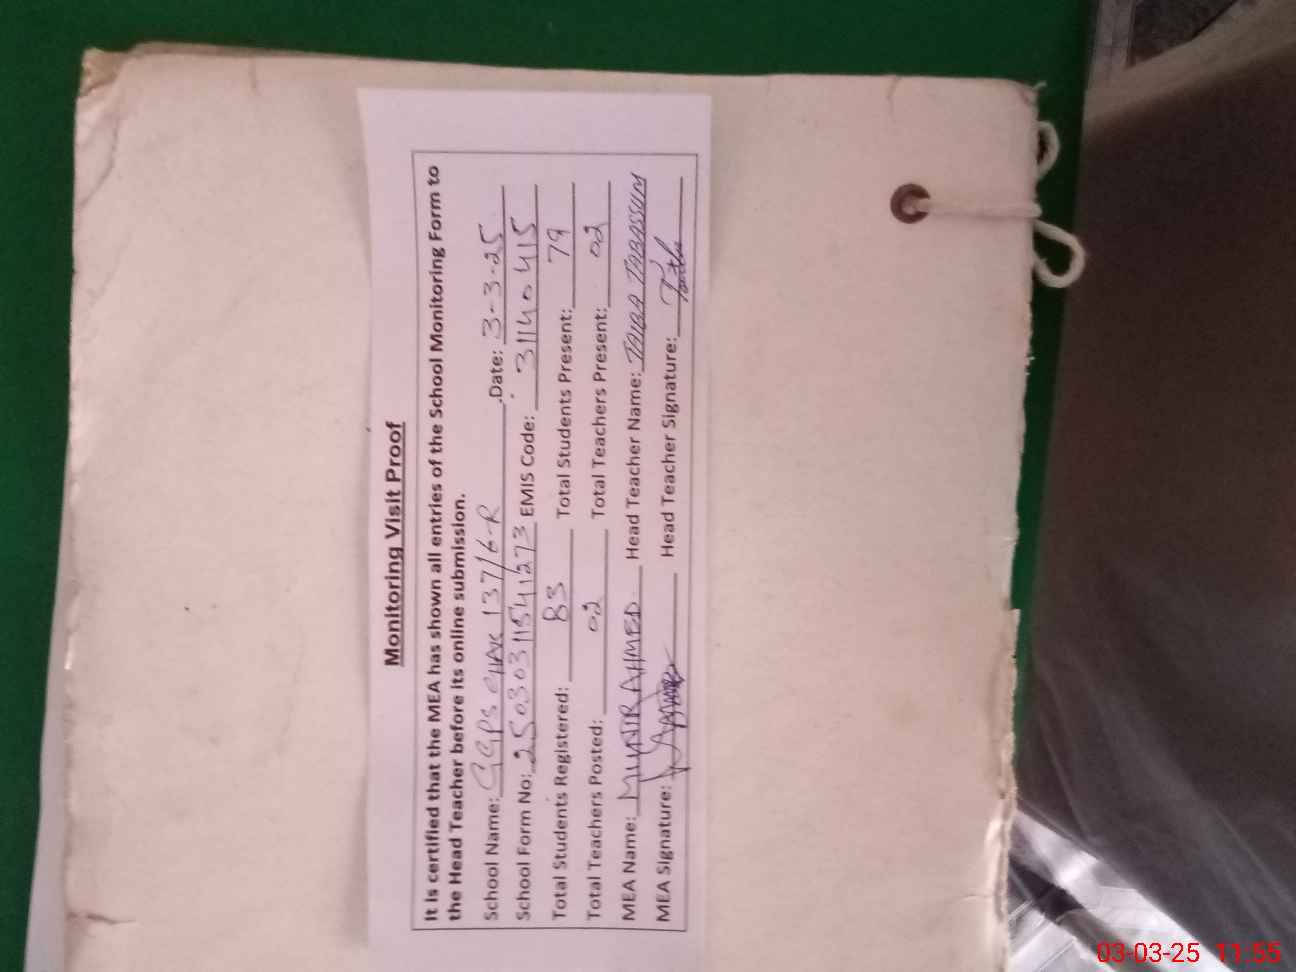 Monitoring Visit Proof
It is certified that the MEA has shown all entries of the School Monitoring Form to
the Head Teacher before its online submission.
School Name: GGPS CHAK 137/6-R Date: 3-3-25
School Form No: 25030311541273 EMIS Code: 31140415
Total Students Registered: 83 Total Students Present: 79
Total Teachers Posted: 02 Total Teachers Present: 02
MEA Name: MUNIR AHMED Head Teacher Name: TAIBA TABASSUM
MEA Signature: Head Teacher Signature:
03-03-25 11:55